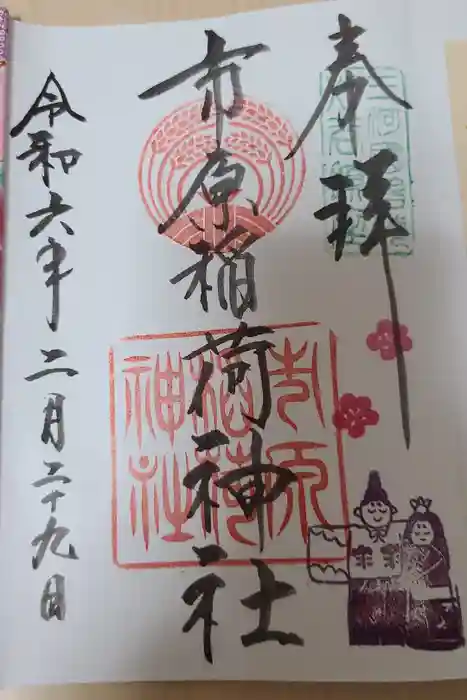 奉拝
市原稲荷神社
市原稲荷神社
令和六年二月二十九日